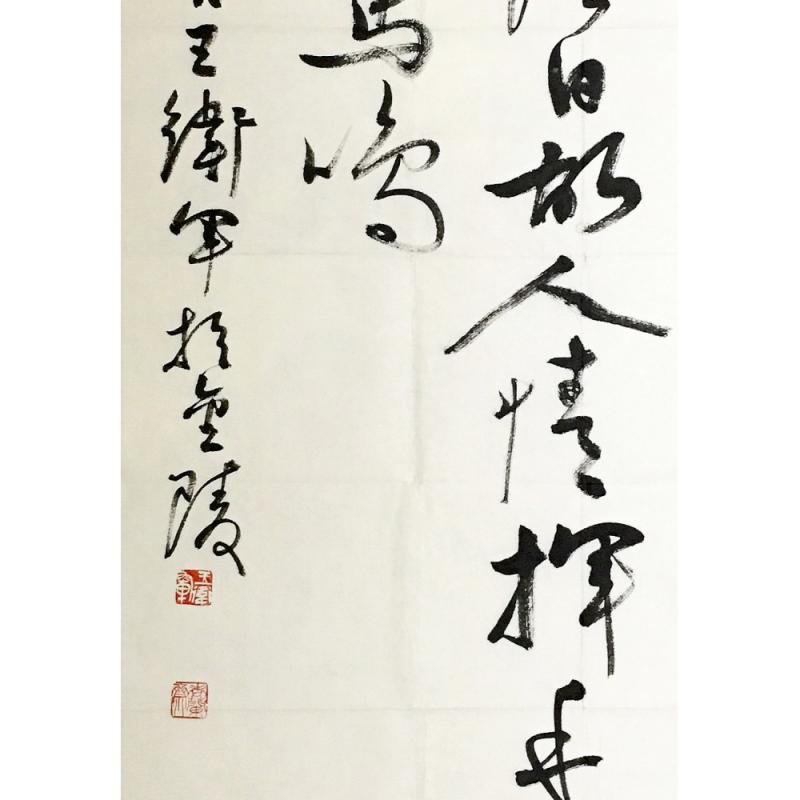 日故人情揮手
馬鳴
王衛軍於金陵
王衛軍